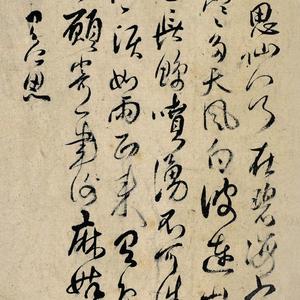 思仙人乃在碧海
多天風白波連山
長鯨噴湧不可
淚如雨西来
願寄一書謝麻姑
思